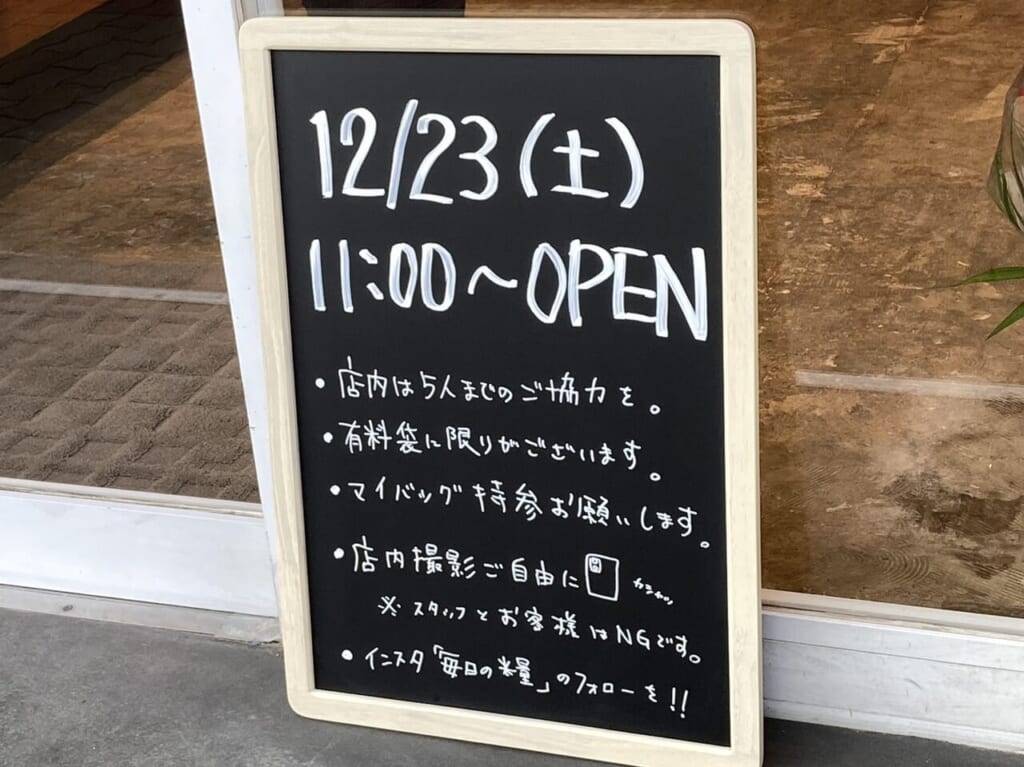 12/23(土)
11:00〜OPEN
・店内は5人までのご協力を。
・有料袋に限りがございます。
・マイバッグ持参お願いします。
・店内撮影ご自由に カシャッ
※スタッフとお客様はNGです。
・インスタ「毎日の糧」のフォローを!!